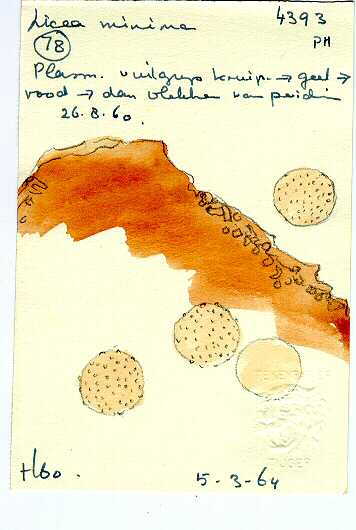 Licea minima 4393
78 PM
Plasm. vuilgrijs kruip. → geel →
rood → dan vlekken van peridien
26.8.60.
H60. 5-3-64